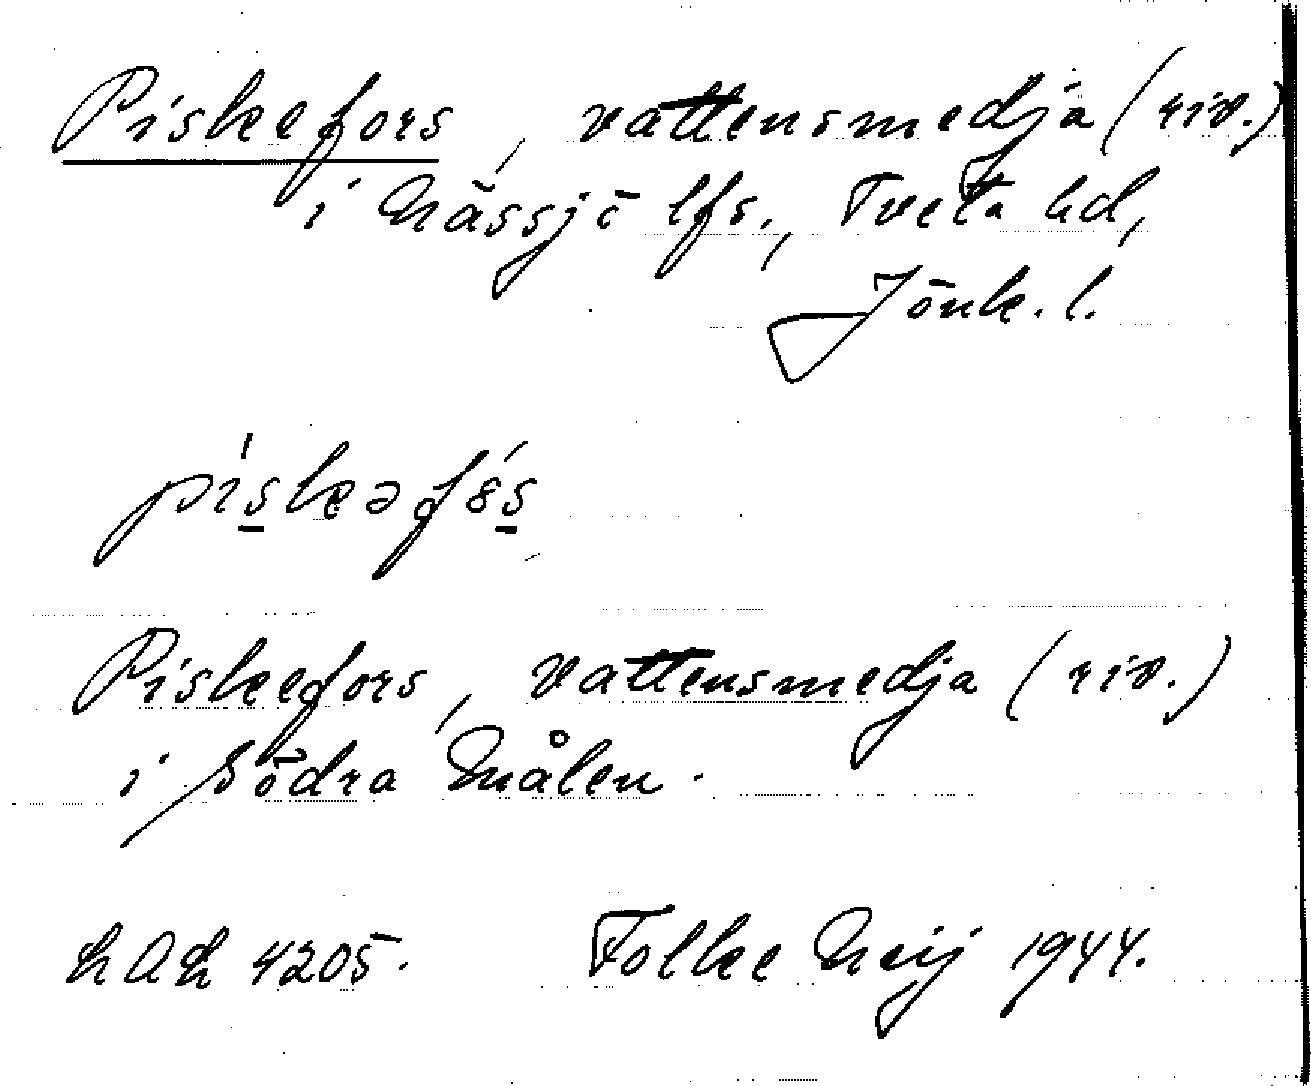 Piskefors, vattensmedja (riv.)
i Nässjö lfs., Tveta hd,
Jönk. l.
Piskefors, vattensmedja (riv.)
i Södra Målen.
4205. Folke Neij 1944.